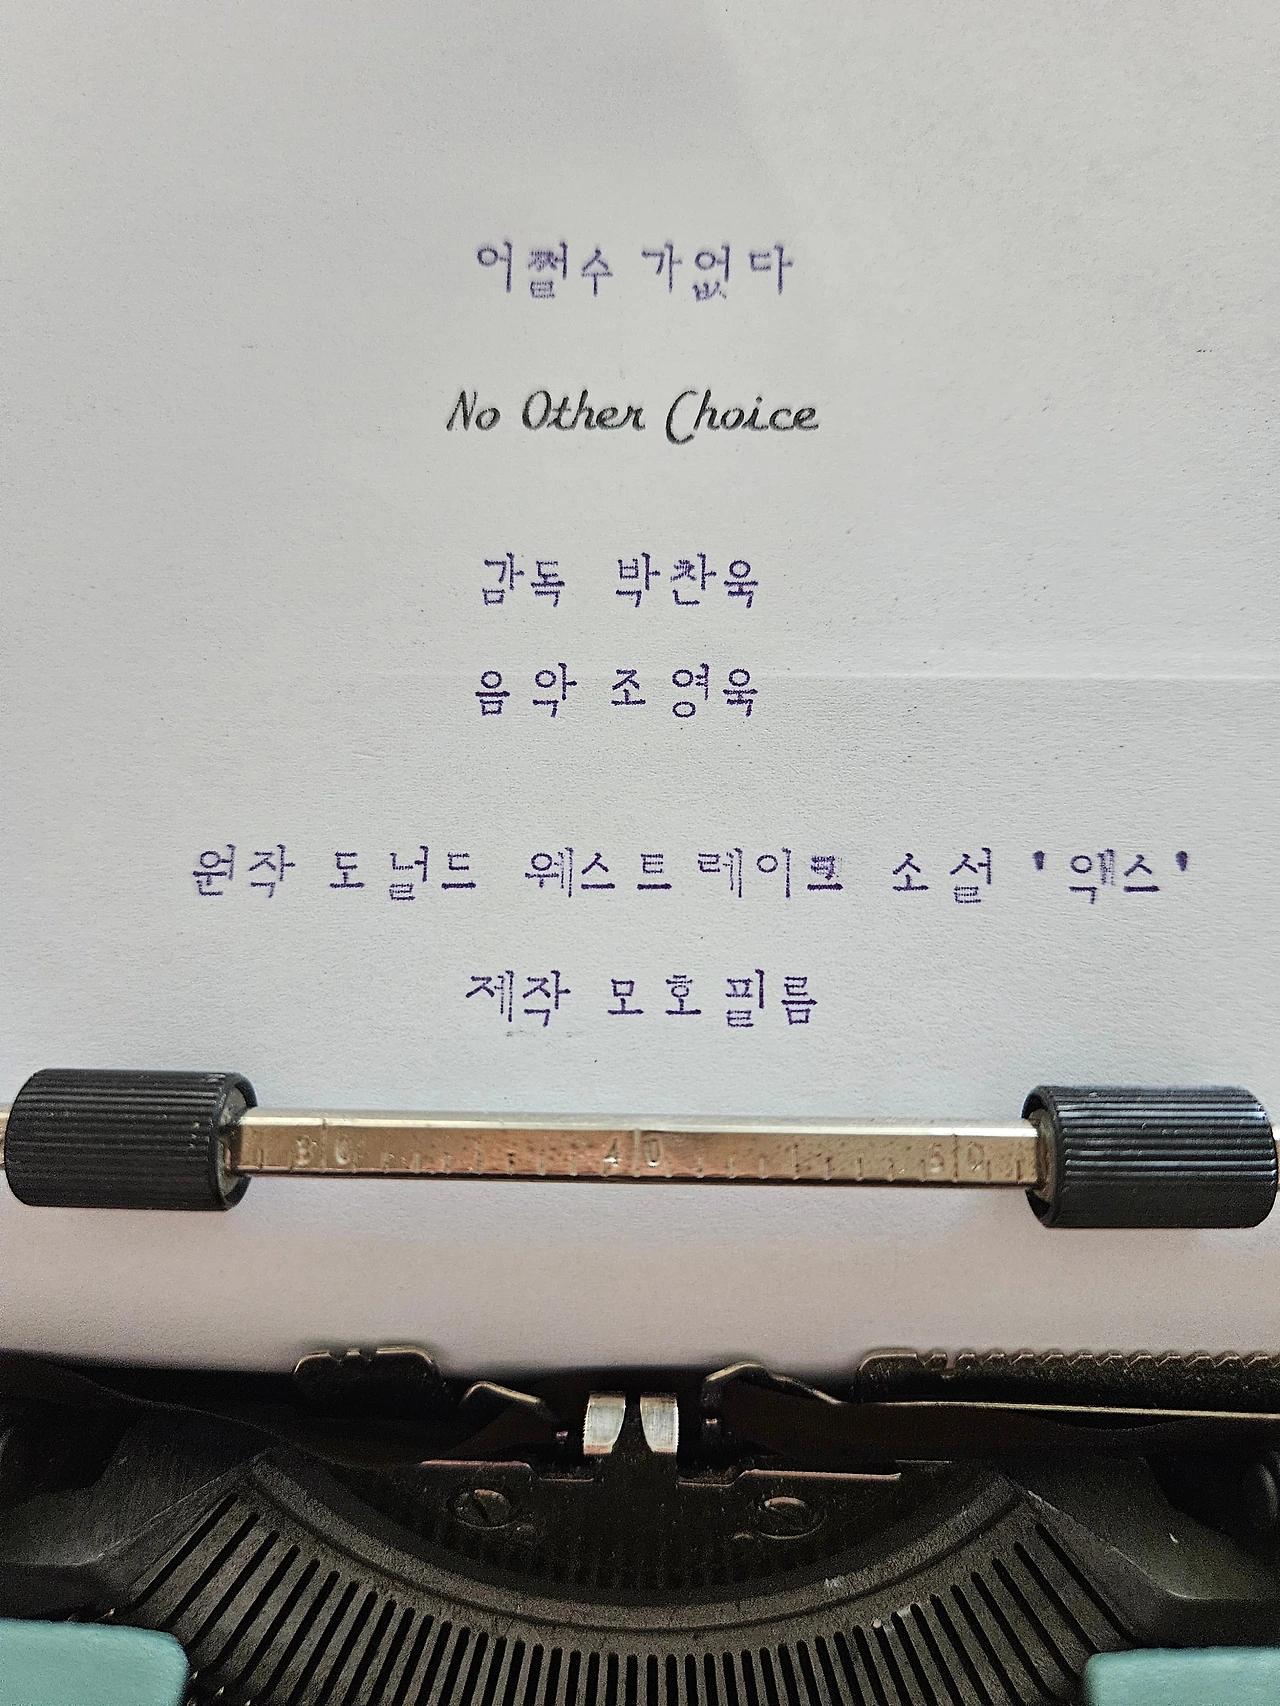 어쩔수가없다
No Other Choice
감독 박찬욱
음악 조영욱
원작 도널드 웨스트레이크 소설 '액스'
제작 모호필름
30 40 50